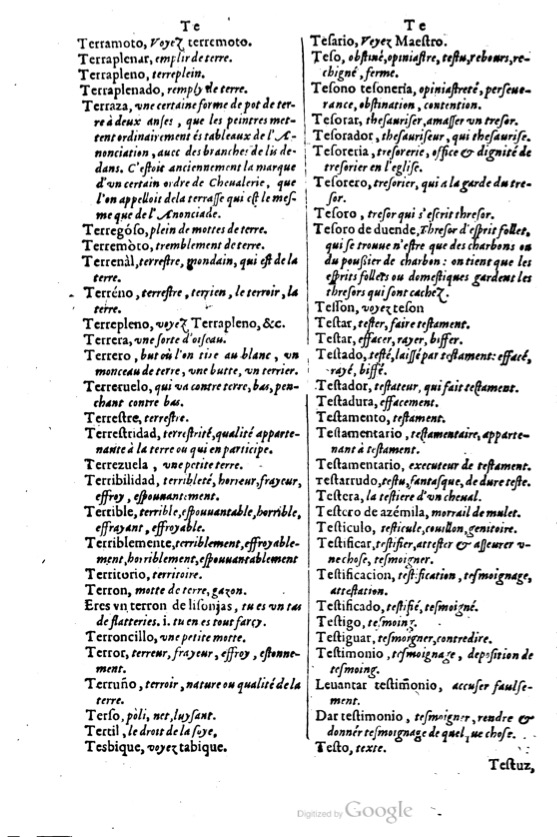 Te
Terramoto, Voyez terremoto.
Terraplenar, emplir de terre.
Terrapleno, terreplein.
Terraplenado, remply de terre.
Terraza, vne certaine forme de pot de ter-
re à deux anſes, que les peintres met-
tent ordinairement és tableaux de l'A-
nonciation, auec des branches de lis de-
dans. C'eſtoit anciennement la marque
d'vn certain ordre de Cheualerie, que
l'on appelloit dela terraſſe qui eſt le meſ-
me que de l'Anonciade.
Terregóſo, plein de mottes de terre.
Terremòto, tremblement de terre.
Terrenàl, terreſtre, mondain, qui eſt de la
terre.
Terréno, terreſtre, terrien, le terroir, la
terre.
Terrepleno, voyez Terrapleno, &c.
Terrera, vne ſorte d'oiſeau.
Terrero, but où l'on tire au blanc, vn
monceau de terre, vne butte, vn terrier.
Terreruelo, qui va contre terre, bas, pen-
chant contre bas.
Terreſtre, terreſtre.
Terreſtridad, terreſtrité, qualité apparte-
nante à la terre ou qui en participe.
Terrezuela, vne petite terre.
Terribilidad, terribleté, horreur, frayeur,
effroy, eſpouuantement.
Terrible, terrible, eſpouuantable, horrible,
effrayant, effroyable.
Terriblemente, terriblement, effroyable-
ment, horriblement, eſpouuantablement
Territorio, territoire.
Terron, motte de terre, gazon.
Eres vn terron de liſonjas, tu es vn tas
de flatteries. i. tu en es tout farcy.
Terroncillo, vne petite motte.
Terror, terreur, frayeur, effroy, eſtonne-
ment.
Terruño, terroir, nature ou qualité de la
terre.
Terſo, pòli, net, luyſant.
Tertil, le droit de la ſoye.
Tesbique, voyez tabique.
Te
Teſario, Voyez Maeſtro.
Teſo, obſtiné, opiniaſtre, teſtu, rebours, re-
chigné, ferme.
Teſono teſoneria, opiniaſtreté, perſeue-
rance, obſtination, contention.
Teſorar, theſauriſer, amaſſer vn treſor.
Teſorador, theſauriſeur, qui theſauriſe.
Teſoreria, treſorerie, office & dignité de
treſorier en l'egliſe.
Teſorero, treſorier, qui a la garde du tre-
ſor.
Teſoro, treſor qui s'eſcrit threſor.
Teſoro de duende, Threſor d'eſprit follet,
qui ſe trouue n'eſtre que des charbons ou
du pouſſier de charbon: on tient que les
eſprits follets ou domeſtiques gardent les
threſors qui ſont cachez.
Teſſon, voyez teſon
Teſtar, teſter, faire teſtament.
Teſtar, effacer, rayer, biffer.
Teſtado, teſté, laiſſé par teſtament: effacé,
rayé, biffé.
Teſtador, teſtateur, qui fait teſtament.
Teſtadura, effacement.
Teſtamento, teſtament.
Teſtamentario, teſtamentaire, apparte-
nant à teſtament.
Teſtamentario, executeur de teſtament.
Teſtarrudo, teſtu, fantaſque, de dure teſte.
Teſtera, la teſtiere d'vn cheual.
Teſtero de azémila, morrail de mulet.
Teſticulo, teſticule, couillon, genitoire.
Teſtificar, teſtifier, atteſter & aſſeurer v-
ne choſe, teſmoigner.
Teſtificacion, teſtification, teſmoignage,
atteſtation.
Teſtificado, teſtifié, teſmoigné.
Teſtigo, teſmoing.
Teſtiguar, teſmoigner, contredire.
Teſtimonio, teſmoignage, depoſition de
teſmoing.
Leuantar teſtimõnio, accuſer fauſſe-
ment.
Dar teſtimonio, teſmoigner, rendre &
donnér teſmoignage de quelque choſe.
Teſto, texte.
Teſtuz,
Digitized by Google